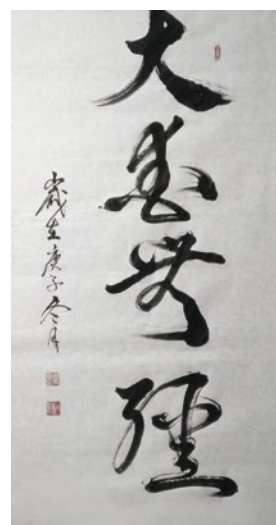 大愛無疆
歲在庚子冬月